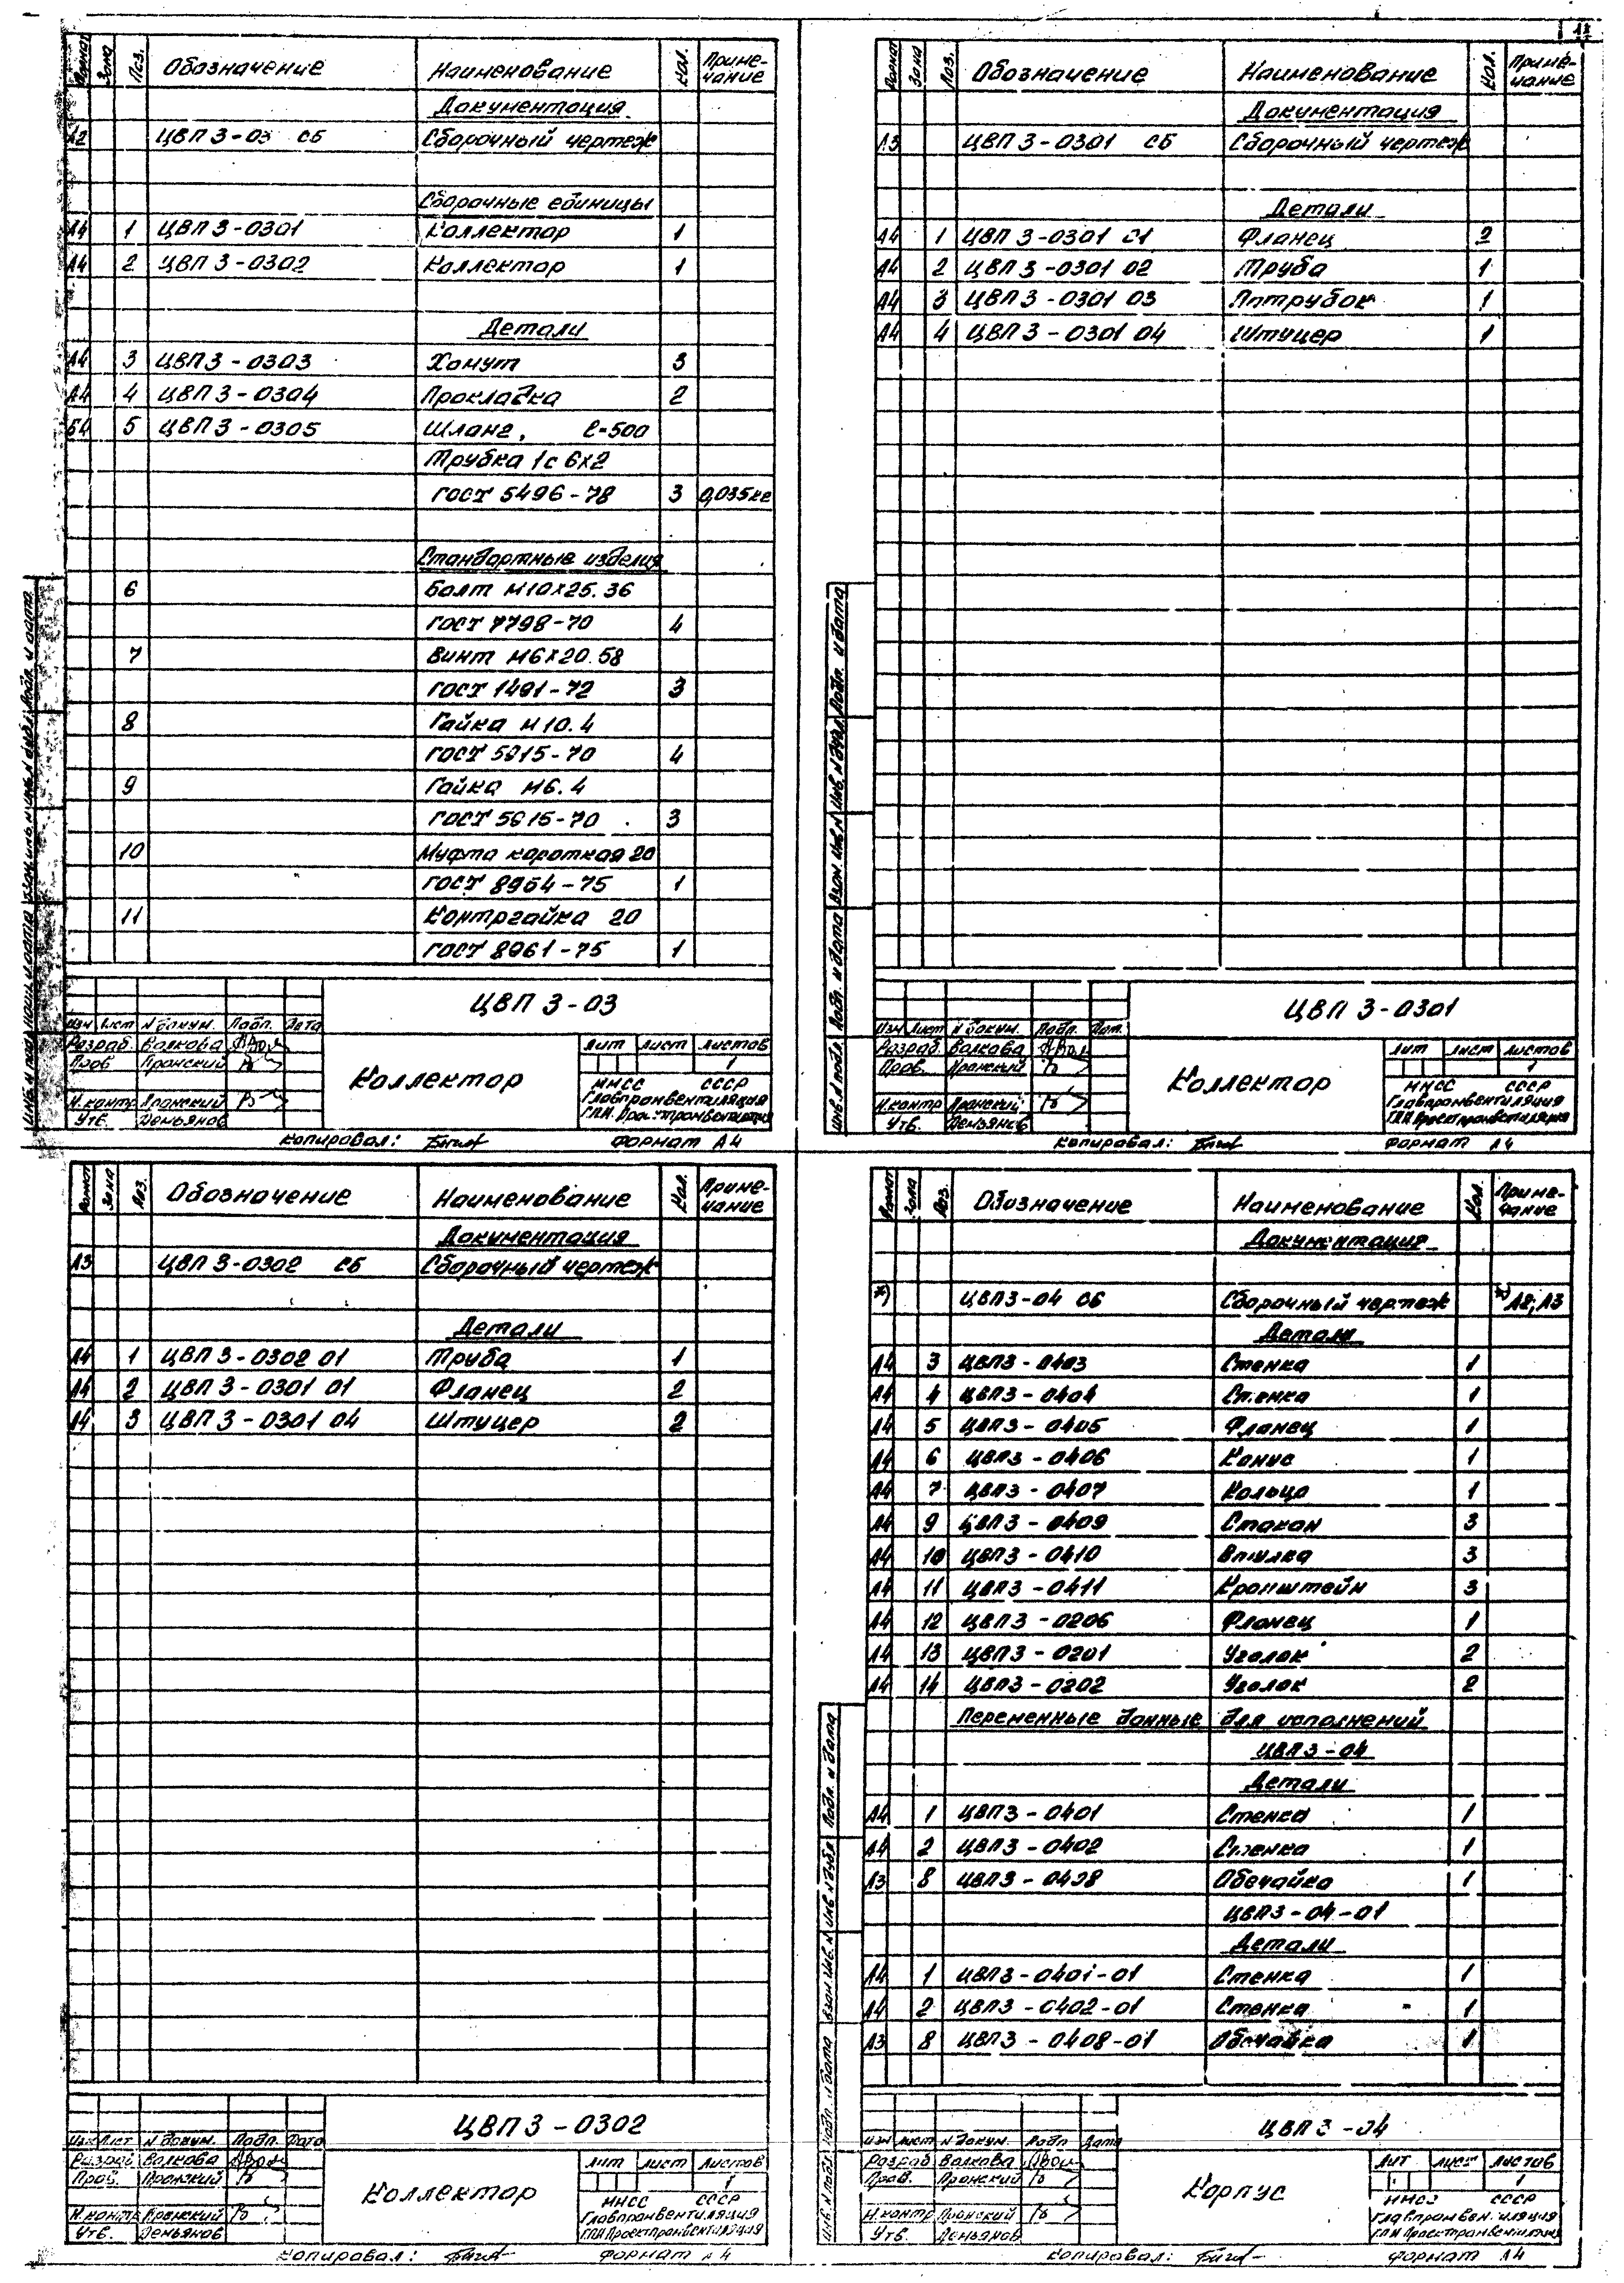 11
Формат Зона Поз. Обозначение Наименование Кол. Приме-
чание
Документация
А2 ЦВП 3-03 СБ Сборочный чертеж
Сборочные единицы
А4 1 ЦВП 3-0301 Коллектор 1
А4 2 ЦВП 3-0302 Коллектор 1
Детали
А4 3 ЦВП 3-0303 Хомут 3
А4 4 ЦВП 3-0304 Прокладка 2
Б4 5 ЦВП 3-0305 Шланг, l=500
Трубка 1с 6х2
ГОСТ 5496-78 3 0,035кг
Стандартные изделия
6 Болт М10х25.36
ГОСТ 7798-70 4
7 Винт М6х20.58
ГОСТ 1491-72 3
8 Гайка М10.4
ГОСТ 5915-70 4
9 Гайка М6.4
ГОСТ 5915-70 3
10 Муфта короткая 20
ГОСТ 8954-75 1
11 Контргайка 20
ГОСТ 8961-75 1
ЦВП 3-03
Изм Лист N докум. Подп. Дата
Разраб. Волкова
Пров Пронский
Н.контр Пронский
Утв. Демьянов
Коллектор
Лит Лист Листов
1
ММСС СССР
Главпромвентиляция
ГПИ Проектпромвентиляция
Копировал: Формат А4
Инв.N подл. Подп. и дата Взам.инв.N Инв.N дубл. Подп. и дата
Формат Зона Поз. Обозначение Наименование Кол. Приме-
чание
Документация
А3 ЦВП 3-0301 СБ Сборочный чертеж
Детали
А4 1 ЦВП 3-0301 01 Фланец 2
А4 2 ЦВП 3-0301 02 Труба 1
А4 3 ЦВП 3-0301 03 Патрубок 1
А4 4 ЦВП 3-0301 04 Штуцер 1
ЦВП 3-0301
Изм Лист N докум. Подп. Дат.
Разраб. Волкова
Пров. Пронский
Н.контр Пронский
Утв. Демьянов
Коллектор
Лит Лист Листов
1
ММСС СССР
Главпромвентиляция
ГПИ Проектпромвентиляция
Копировал: Формат А4
Инв.N подл. Подп. и дата Взам.инв.N Инв.N дубл. Подп. и дата
Формат Зона Поз. Обозначение Наименование Кол. Приме-
чание
Документация
А3 ЦВП 3-0302 СБ Сборочный чертеж
Детали
А4 1 ЦВП 3-0302 01 Труба 1
А4 2 ЦВП 3-0301 01 Фланец 2
А4 3 ЦВП 3-0301 04 Штуцер 2
ЦВП 3-0302
Изм Лист N докум. Подп. Дата
Разраб Волкова
Пров. Пронский
Н.контр Пронский
Утв. Демьянов
Коллектор
Лит Лист Листов
1
ММСС СССР
Главпромвентиляция
ГПИ Проектпромвентиляция
Копировал: Формат А4
Формат Зона Поз. Обозначение Наименование Кол. Приме-
чание
Документация
*) ЦВП 3-04 СБ Сборочный чертеж *) А2; А3
Детали
А4 3 ЦВП3-0403 Стенка 1
А4 4 ЦВП3-0404 Стенка 1
А4 5 ЦВП3-0405 Фланец 1
А4 6 ЦВП3-0406 Конус 1
А4 7 ЦВП3-0407 Кольцо 1
А4 9 ЦВП3-0409 Стакан 3
А4 10 ЦВП3-0410 Втулка 3
А4 11 ЦВП3-0411 Кронштейн 3
А4 12 ЦВП3-0206 Фланец 1
А4 13 ЦВП3-0201 Уголок 2
А4 14 ЦВП3-0202 Уголок 2
Переменные данные для исполнений
ЦВП3-04
Детали
А4 1 ЦВП3-0401 Стенка 1
А4 2 ЦВП3-0402 Стенка 1
А3 8 ЦВП3-0408 Обечайка 1
ЦВП3-04-01
Детали
А4 1 ЦВП3-0401-01 Стенка 1
А4 2 ЦВП3-0402-01 Стенка 1
А3 8 ЦВП3-0408-01 Обечайка 1
ЦВП 3-04
Изм Лист N докум. Подп Дата
Разраб Волкова
Пров. Пронский
Н.контр Пронский
Утв. Демьянов
Корпус
Лит Лист Листов
1
ММСС СССР
Главпромвентиляция
ГПИ Проектпромвентиляция
Копировал: Формат А4
Инв.N подл. Подп. и дата Взам.инв.N Инв.N дубл Подп. и дата